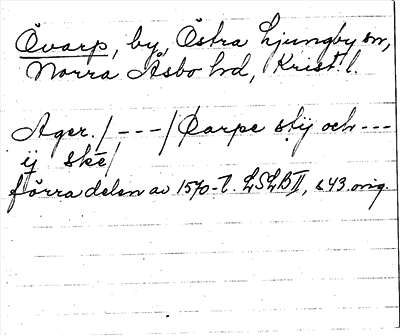 Övarp, by, Östra Ljungby sn,
Norra Åsbo hd, Krist. l.
Ager. / - - - / Oarpe stÿ och - - -
ÿ ske /
förra delen av 1570-t. LSLB II, s 43. orig.